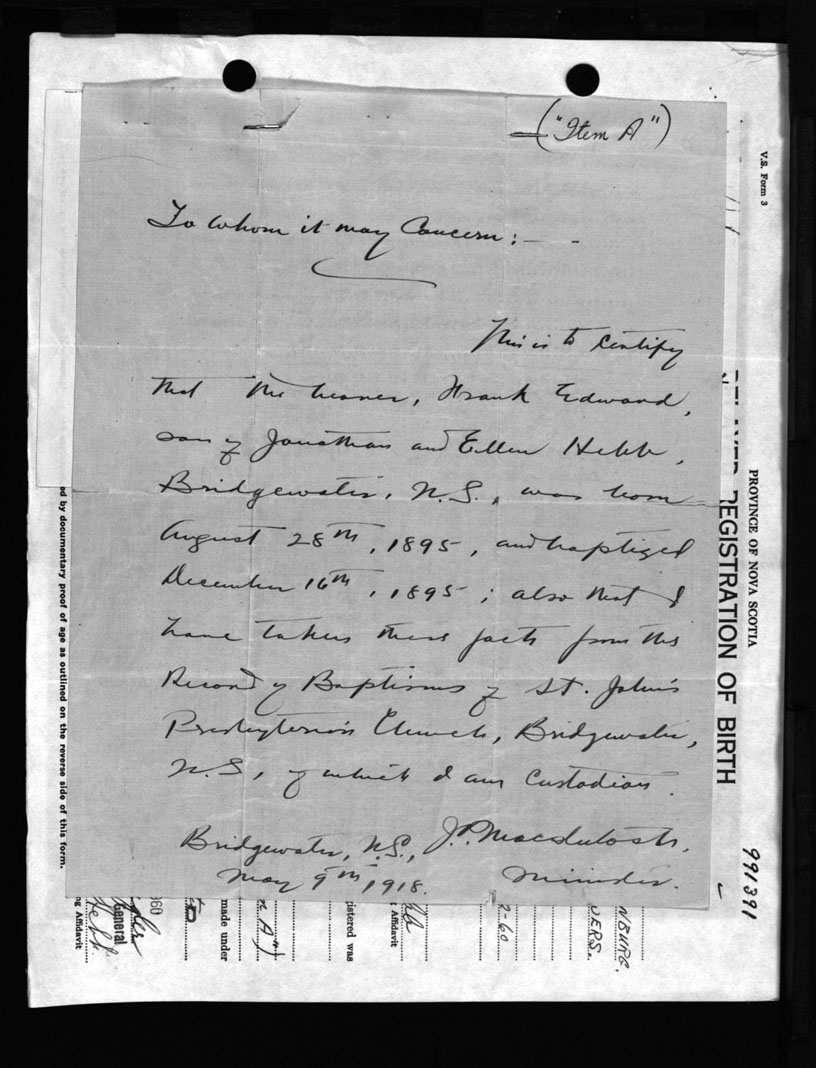 ("Item A")
To whom it may Concern:—
This is to Certify
that the bearer, Frank Edward,
son of Jonathan and Ellen Hebb,
Bridgewater, N.S., was born
August 28th, 1895, and baptized
December 16th, 1895; also that I
have taken these facts from the
Record of Baptisms of St. John's
Presbyterian Church, Bridgewater,
N.S., of which I am Custodian.
Bridgewater, N.S., J.P. MacIntosh,
May 9th, 1918. Minister.
V.S. Form 3
PROVINCE OF NOVA SCOTIA
REGISTRATION OF BIRTH
991391
ed by documentary proof of age as outlined on the reverse side of this form.
NBURG.
VERS.
2-60
t Affidavit
istered was
A")
made under
960
General
Hebb.
ng Affidavit